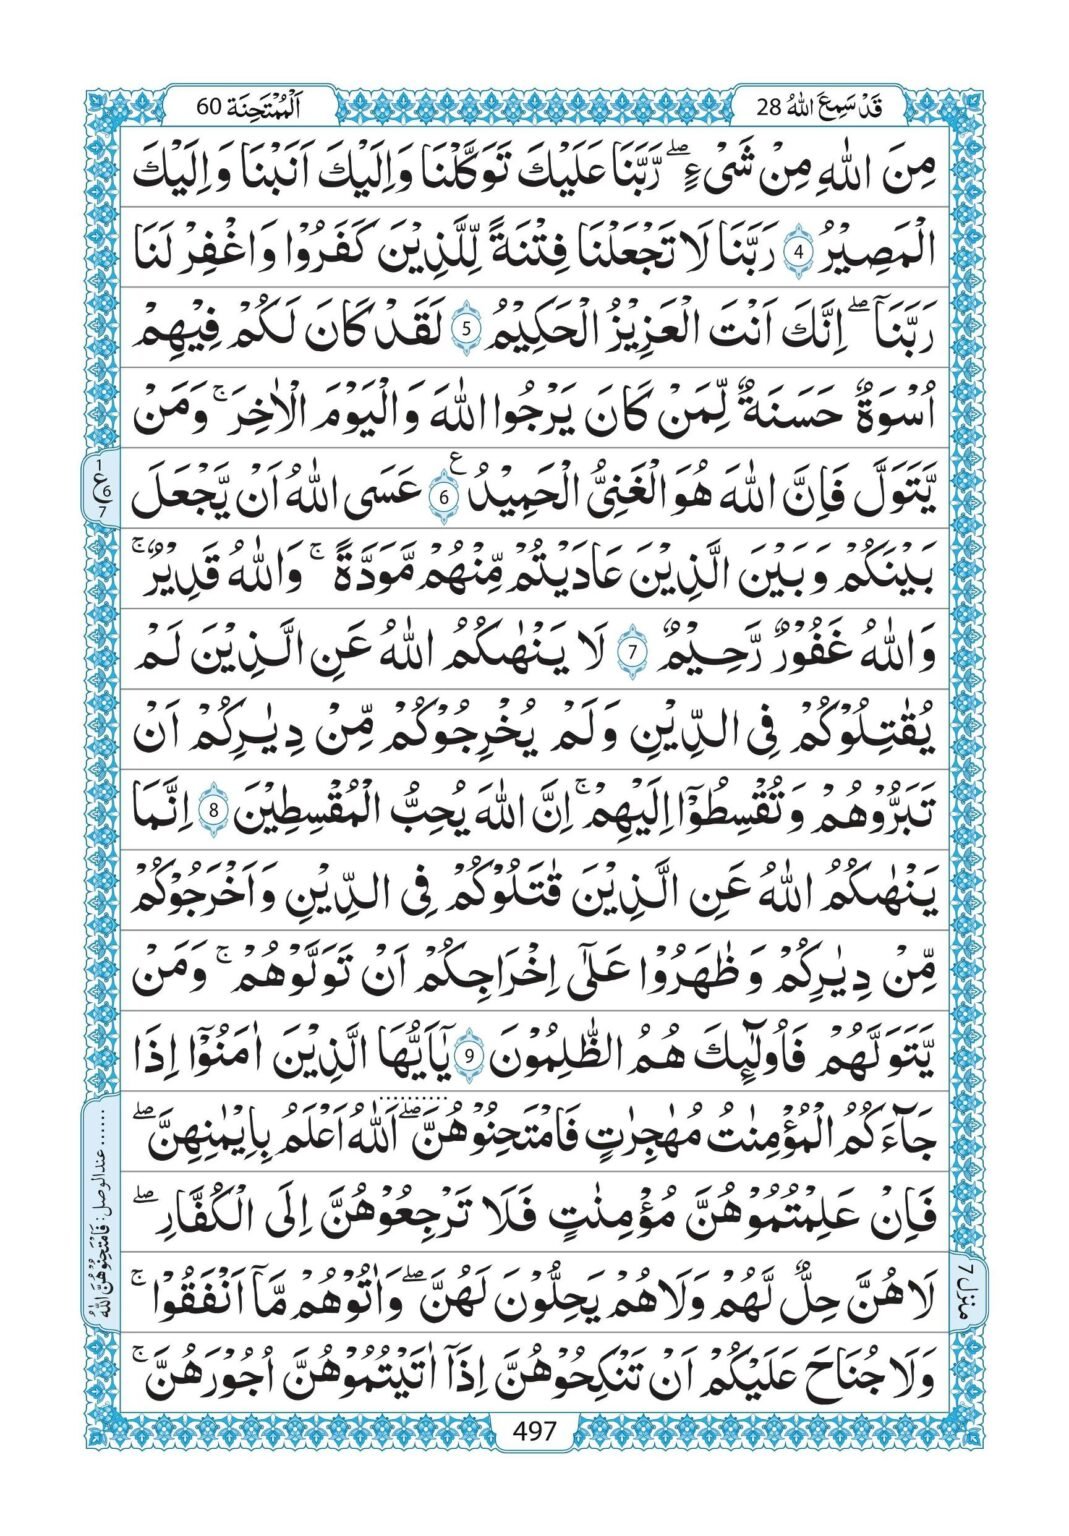 قَدۡ سَمِعَ اللّٰهُ 28
اَلۡمُمۡتَحِنَة 60
مِنَ اللّٰهِ مِنۡ شَىۡءٍ ؕ رَبَّنَا عَلَيۡكَ تَوَكَّلۡنَا وَاِلَيۡكَ اَنَبۡنَا وَاِلَيۡكَ
الۡمَصِيۡرُ 4 رَبَّنَا لَا تَجۡعَلۡنَا فِتۡنَةً لِّلَّذِيۡنَ كَفَرُوۡا وَاغۡفِرۡ لَنَا
رَبَّنَا ۖ اِنَّكَ اَنۡتَ الۡعَزِيۡزُ الۡحَكِيۡمُ 5 لَقَدۡ كَانَ لَكُمۡ فِيۡهِمۡ
اُسۡوَةٌ حَسَنَةٌ لِّمَنۡ كَانَ يَرۡجُوا اللّٰهَ وَالۡيَوۡمَ الۡاٰخِرَ ۚ وَمَنۡ
يَّتَوَلَّ فَاِنَّ اللّٰهَ هُوَ الۡغَنِىُّ الۡحَمِيۡدُ 6 ع عَسَى اللّٰهُ اَنۡ يَّجۡعَلَ
بَيۡنَكُمۡ وَبَيۡنَ الَّذِيۡنَ عَادَيۡتُمۡ مِّنۡهُمۡ مَّوَدَّةً ۚ وَاللّٰهُ قَدِيۡرٌ ۚ
وَاللّٰهُ غَفُوۡرٌ رَّحِيۡمٌ 7 لَا يَنۡهٰٮكُمُ اللّٰهُ عَنِ الَّذِيۡنَ لَمۡ
يُقَاتِلُوۡكُمۡ فِى الدِّيۡنِ وَلَمۡ يُخۡرِجُوۡكُمۡ مِّنۡ دِيَارِكُمۡ اَنۡ
تَبَرُّوۡهُمۡ وَتُقۡسِطُوۡۤا اِلَيۡهِمۡ ۚ اِنَّ اللّٰهَ يُحِبُّ الۡمُقۡسِطِيۡنَ 8 اِنَّمَا
يَنۡهٰٮكُمُ اللّٰهُ عَنِ الَّذِيۡنَ قٰتَلُوۡكُمۡ فِى الدِّيۡنِ وَاَخۡرَجُوۡكُمۡ
مِّنۡ دِيٰرِكُمۡ وَظٰهَرُوۡا عَلٰٓى اِخۡرَاجِكُمۡ اَنۡ تَوَلَّوۡهُمۡ ۚ وَمَنۡ
يَّتَوَلَّهُمۡ فَاُولٰٓٮِٕكَ هُمُ الظّٰلِمُوۡنَ 9 يٰۤاَيُّهَا الَّذِيۡنَ اٰمَنُوۡۤا اِذَا
جَآءَكُمُ الۡمُؤۡمِنٰتُ مُهٰجِرٰتٍ فَامۡتَحِنُوۡهُنَّ ۖ اَللّٰهُ اَعۡلَمُ بِاِيۡمٰنِهِنَّ ۖ
فَاِنۡ عَلِمۡتُمُوۡهُنَّ مُؤۡمِنٰتٍ فَلَا تَرۡجِعُوۡهُنَّ اِلَى الۡكُفَّارِ ۖ
لَا هُنَّ حِلٌّ لَّهُمۡ وَلَا هُمۡ يَحِلُّوۡنَ لَهُنَّ ۖ وَاٰتُوۡهُمۡ مَّاۤ اَنۡفَقُوۡا ۚ
وَلَا جُنَاحَ عَلَيۡكُمۡ اَنۡ تَنۡكِحُوۡهُنَّ اِذَاۤ اٰتَيۡتُمُوۡهُنَّ اُجُوۡرَهُنَّ ۚ
1
ع 6
7
...... عند الوصل: فَامۡتَحِنُوۡهُنَّ اللّٰهُ
منزل 7
497